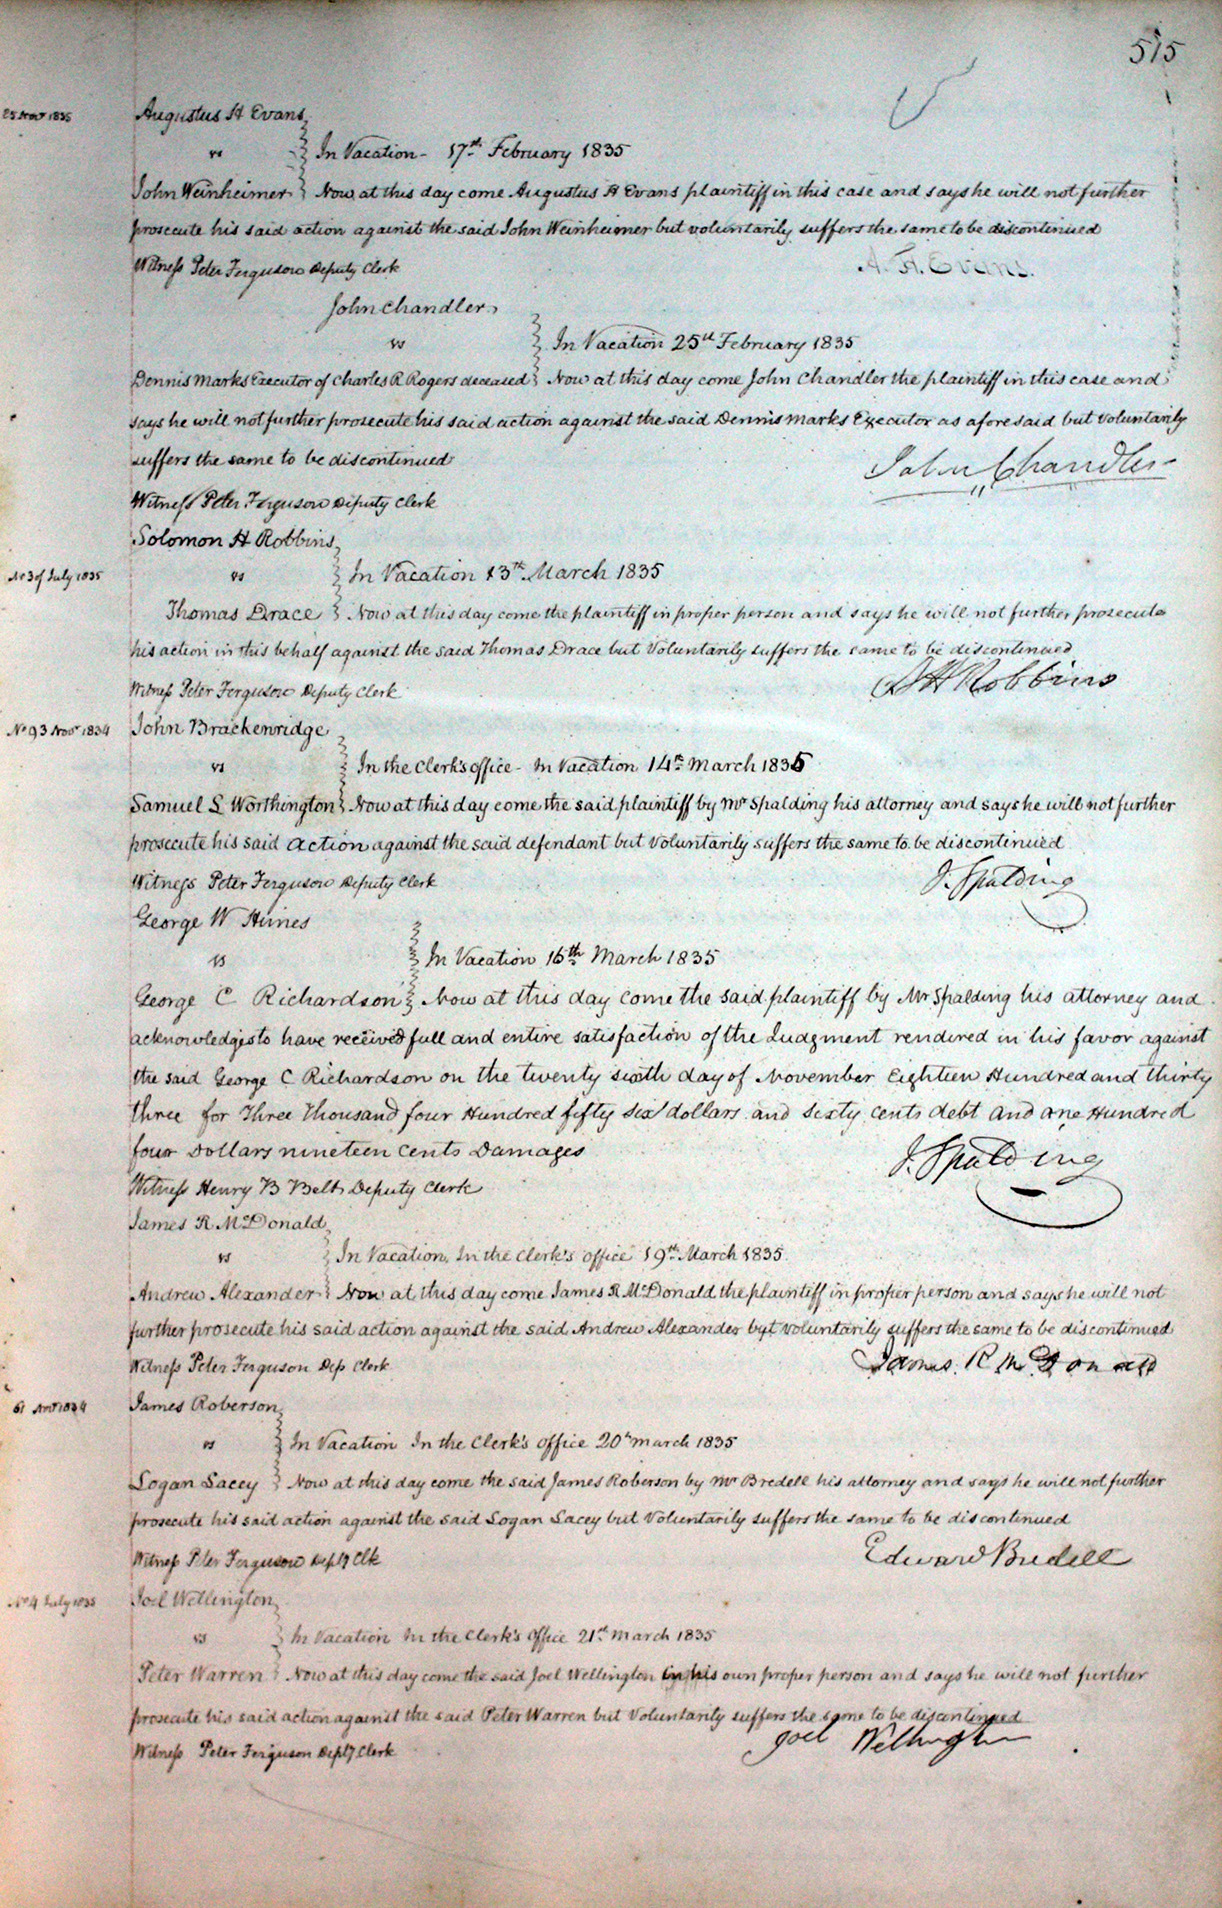 515
25 Nov 1835
Augustus H Evans
vs
In Vacation - 17th February 1835
John Weinheimer Now at this day come Augustus H Evans plaintiff in this case and says he will not further
prosecute his said action against the said John Weinheimer but voluntarily suffers the same to be discontinued
Witness Peter Ferguson Deputy Clerk
A. H. Evans.
John Chandler
vs
In Vacation 25th February 1835
Dennis Marks Executor of Charles R Rogers deceased Now at this day come John Chandler the plaintiff in this case and
says he will not further prosecute his said action against the said Dennis Marks Executor as aforesaid but voluntarily
suffers the same to be discontinued
John Chandler
Witness Peter Ferguson Deputy Clerk
Solomon H Robbins
No 3 of July 1835
vs
In Vacation 13th March 1835
Thomas Drace Now at this day come the plaintiff in proper person and says he will not further prosecute
his action in this behalf against the said Thomas Drace but Voluntarily suffers the same to be discontinued
S H Robbins
Witness Peter Ferguson Deputy Clerk
No 93 Novr 1834
John Brackenridge
vs
In the Clerk's office - In Vacation 14th March 1835
Samuel L Worthington Now at this day come the said plaintiff by Mr Spalding his attorney and says he will not further
prosecute his said action against the said defendant but voluntarily suffers the same to be discontinued
Witness Peter Ferguson Deputy Clerk
J. Spalding
George W Hines
vs
In Vacation 16th March 1835
George C Richardson Now at this day come the said plaintiff by Mr. Spalding his attorney and
acknowledges to have received full and entire satisfaction of the Judgment rendered in his favor against
the said George C Richardson on the twenty sixth day of November Eighteen Hundred and thirty
three for Three Thousand four Hundred fifty six dollars and sixty cents debt and one Hundred
four Dollars nineteen cents Damages
J. Spalding
Witness Henry B Belt Deputy Clerk
James R McDonald
vs
In Vacation. In the Clerk's office 19th March 1835
Andrew Alexander Now at this day come James R McDonald the plaintiff in proper person and says he will not
further prosecute his said action against the said Andrew Alexander byt voluntarily suffers the same to be discontinued
Witness Peter Ferguson Dep Clerk
James. R McDonald
James Roberson
vs
In Vacation In the Clerk's office 20th March 1835
Logan Lacey Now at this day come the said James Roberson by Mr Bredell his attorney and says he will not further
prosecute his said action against the said Logan Lacey but Voluntarily suffers the same to be discontinued
Edward Bredell
Witness Peter Ferguson Depty Clk
No 4 July 1835
Joel Wellington
vs
In Vacation In the Clerk's office 21st March 1835
Peter Warren Now at this day come the said Joel Wellington in his own proper person and says he will not further
prosecute his said action against the said Peter Warren but Voluntarily suffers the same to be discontinued
Joel Wellington
Witness Peter Ferguson Depty Clerk